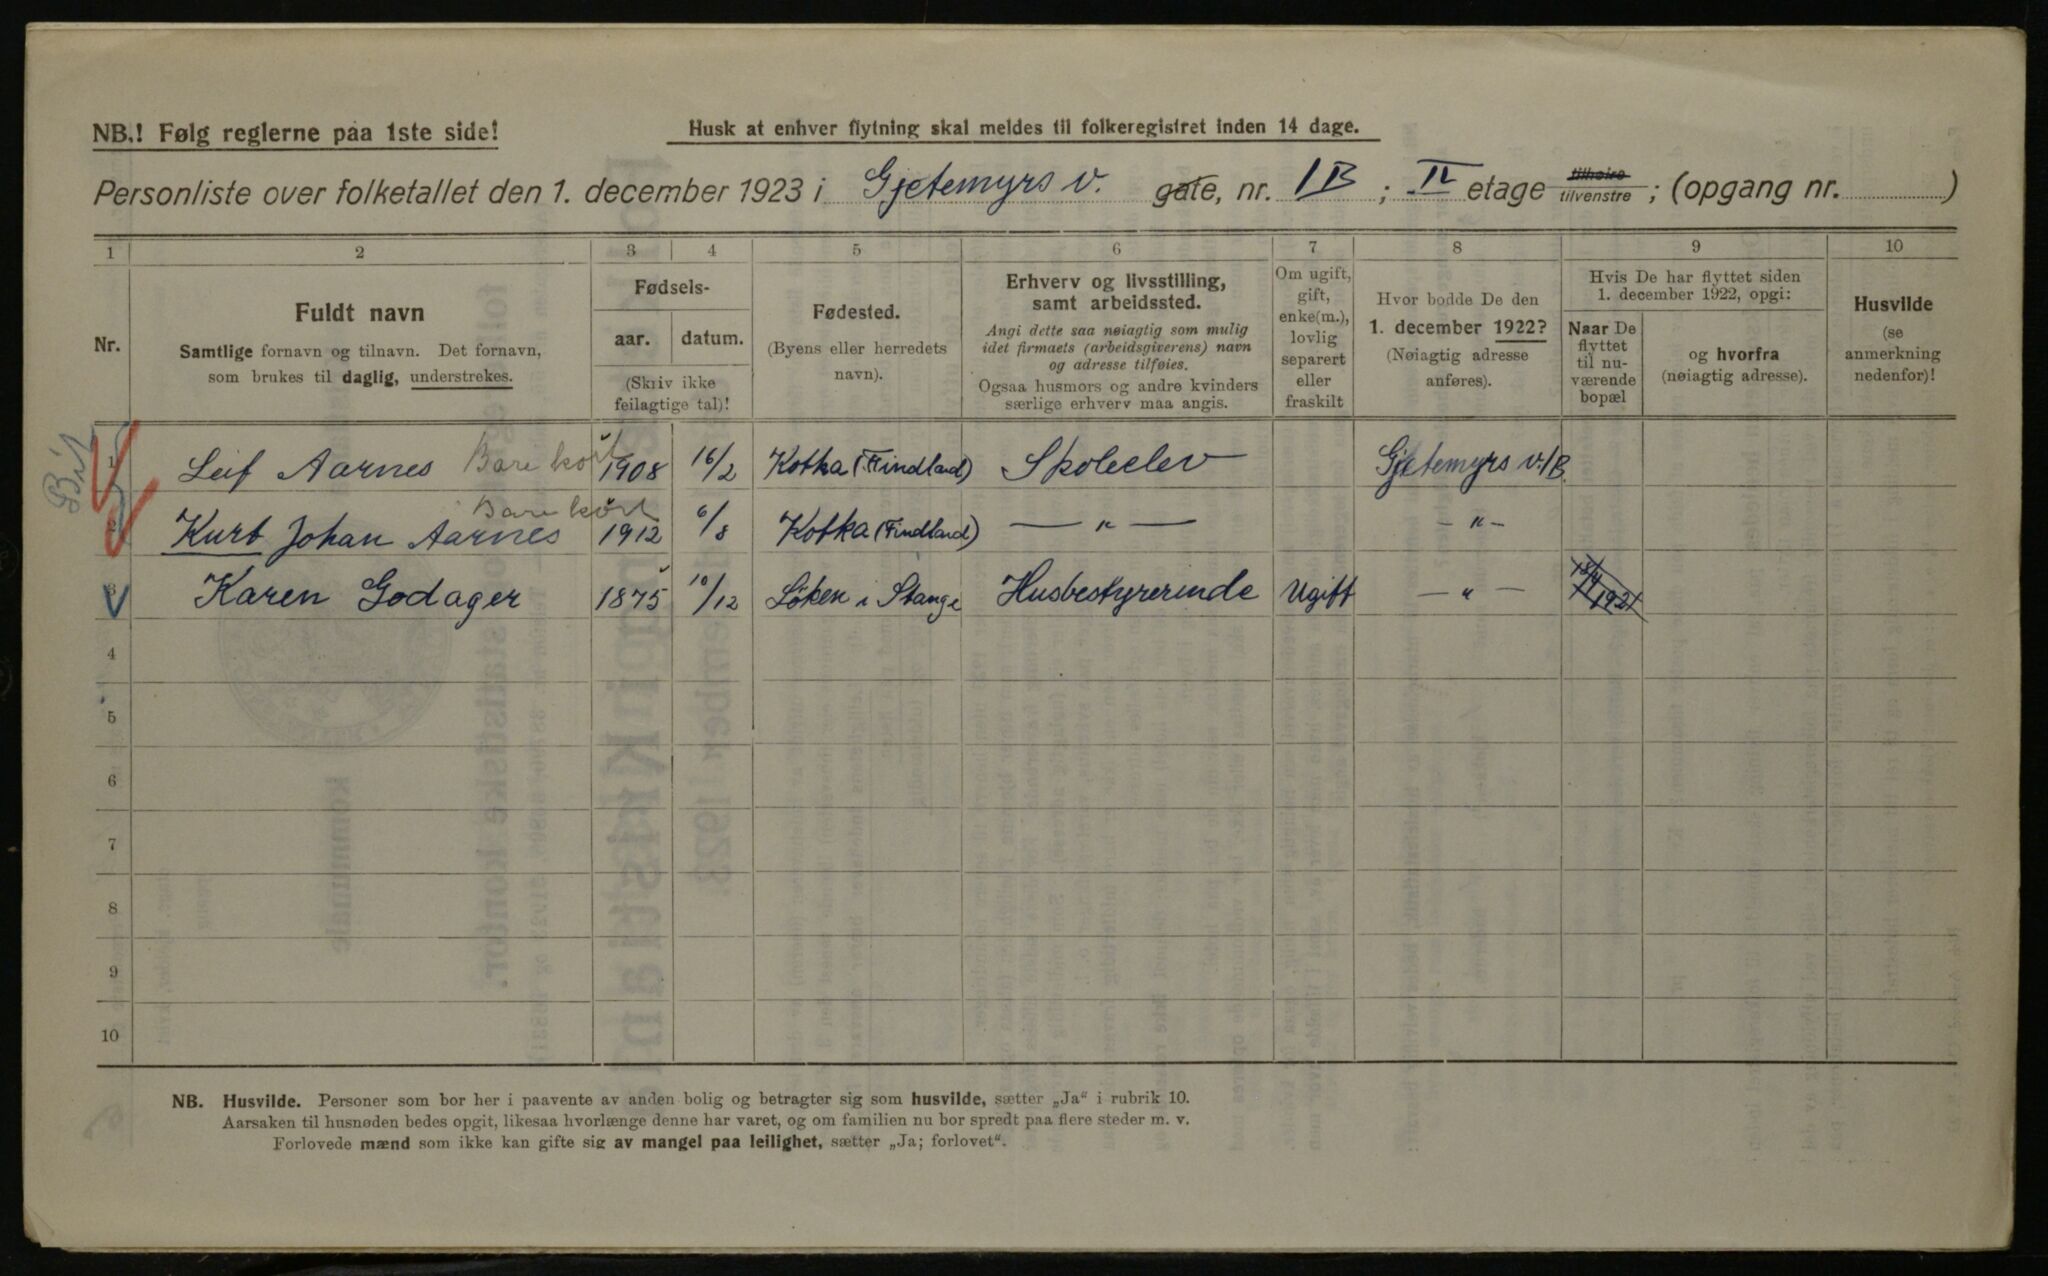 NB.! Følg reglerne paa 1ste side!
Husk at enhver flytning skal meldes til folkeregistret inden 14 dage.
Personliste over folketallet den 1. december 1923 i Gjetemyrs v. gate, nr. 1B ; II etage tilhøire tilvenstre ; (opgang nr. )
1 2 3 4 5 6 7 8 9 10
Nr.
Fuldt navn
Samtlige fornavn og tilnavn. Det fornavn,
som brukes til daglig, understrekes.
Fødsels-
aar. datum.
(Skriv ikke
feilagtige tal)!
Fødested.
(Byens eller herredets
navn).
Erhverv og livsstilling,
samt arbeidssted.
Angi dette saa nøiagtig som mulig
idet firmaets (arbeidsgiverens) navn
og adresse tilføies.
Ogsaa husmors og andre kvinders
særlige erhverv maa angis.
Om ugift,
gift,
enke(m.),
lovlig
separert
eller
fraskilt
Hvor bodde De den
1. december 1922?
(Nøiagtig adresse
anføres).
Hvis De har flyttet siden
1. december 1922, opgi:
Naar De
flyttet
til nu-
værende
bopæl
og hvorfra
(nøiagtig adresse).
Husvilde
(se
anmerkning
nedenfor)!
1 Leif Aarnes Bare kort 1908 16/2 Kotka (Findland) Skoleelev Gjetemyrs v. 1B.
2 Kurt Johan Aarnes Bare kort 1912 6/8 Kotka (Findland) — " — — " —
3 Karen Godager 1875 10/12 Løken i Stange Husbestyrerinde Ugift — " — 1921
4
5
6
7
8
9
10
NB. Husvilde. Personer som bor her i paavente av anden bolig og betragter sig som husvilde, sætter „Ja“ i rubrik 10.
Aarsaken til husnøden bedes opgit, likesaa hvorlænge denne har varet, og om familien nu bor spredt paa flere steder m. v.
Forlovede mænd som ikke kan gifte sig av mangel paa leilighet, sætter „Ja; forlovet“.